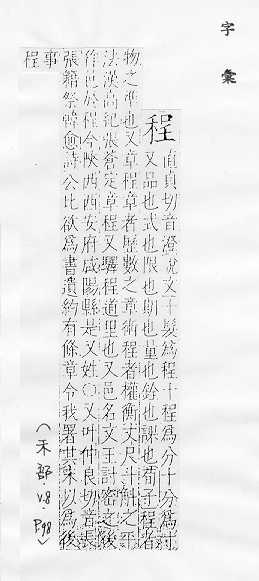 字彙
程
直貞切音澄說文十髮為程十程為分十分為寸
又品也式也限也期也量也銓也課也荀子程者
物之準也又章程章者曆數之章術程者權衡丈尺斗斛之平
法漢高紀張蒼定章程又驛程道里也又邑名文王討密之後
作邑於程今陝西西安府咸陽縣是又姓○又叶仲良切音長
張籍祭韓愈詩公比欲為書遺約有條章令我署其末以為後
事程
（禾部·V8·P98）